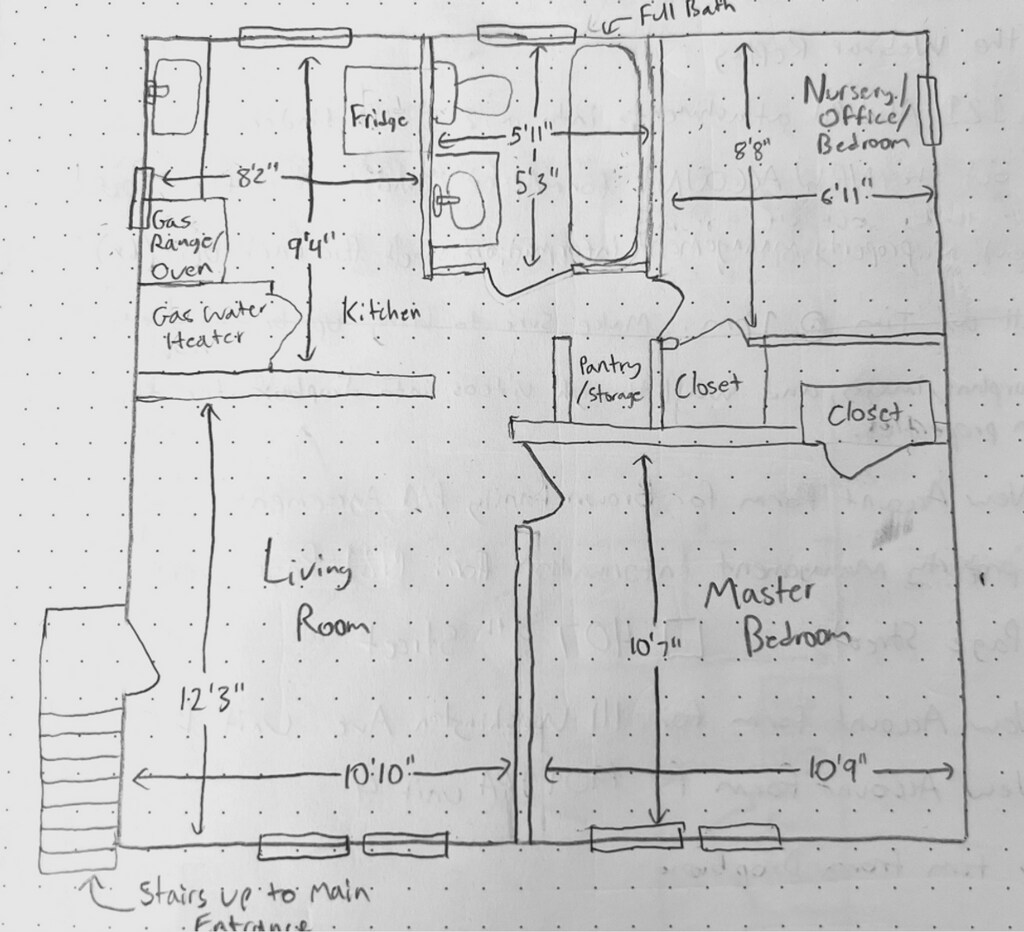 Full Bath
Nursery/
Office/
Bedroom
Fridge
5'11"
8'8"
8'2"
5'3"
6'11"
Gas
Range/
Oven
9'4"
Gas Water
Heater
Kitchen
Pantry
/Storage
Closet
Closet
Living
Room
Master
Bedroom
10'7"
12'3"
10'10"
10'9"
Stairs up to Main
Entrance